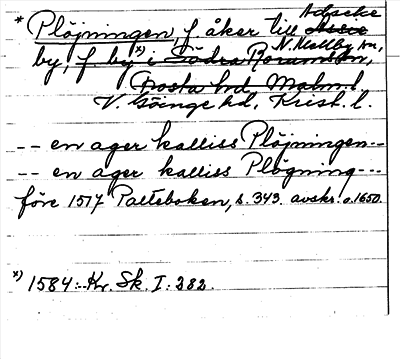 Adseke
* Plöjningen, f. åker till
by, f. by *) i Södra Rorums sn, N. Mellby sn,
Frosta hd Malm. l.
V. Göinge hd, Krist. l.
-- en ager kalliss Plöjningen --
-- en ager kalliss Plögning ---
före 1517 Palteboken, s. 343. avskr. o. 1650.
*) 1584: Kr. Sk. I: 282.